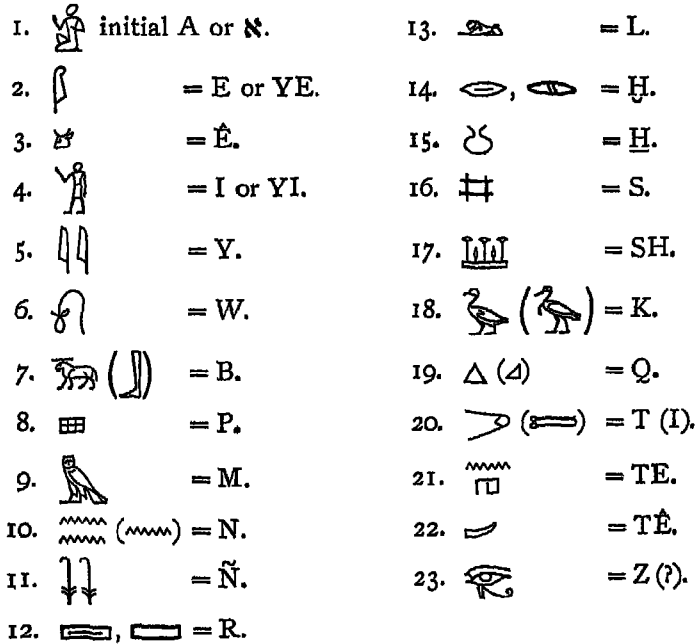 1. initial A or א.
2. = E or YE.
3. = Ê.
4. = I or YI.
5. = Y.
6. = W.
7. ( ) = B.
8. = P.
9. = M.
10. ( ) = N.
11. = Ñ.
12. , = R.
13. = L.
14. , = H̱̆.
15. = H̱.
16. = S.
17. = SH.
18. ( ) = K.
19. ( ) = Q.
20. ( ) = T (I).
21. = TE.
22. = TÊ.
23. = Z (?).